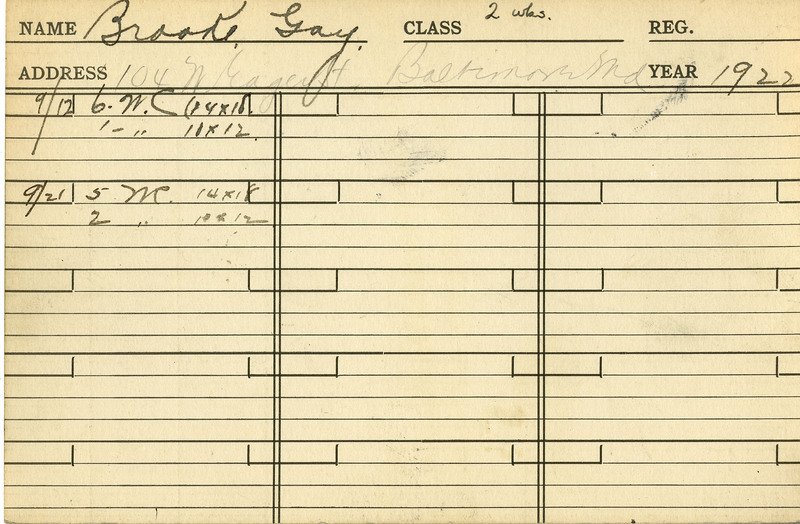 NAME Brooke, Gay. CLASS 2 wks. REG.
ADDRESS 104 W Eager St. Baltimore Md YEAR 1922
9/12 6. W.C (14x18)
1- " 10x12.
9/21 5 WC. 14x18
2 " 10x12